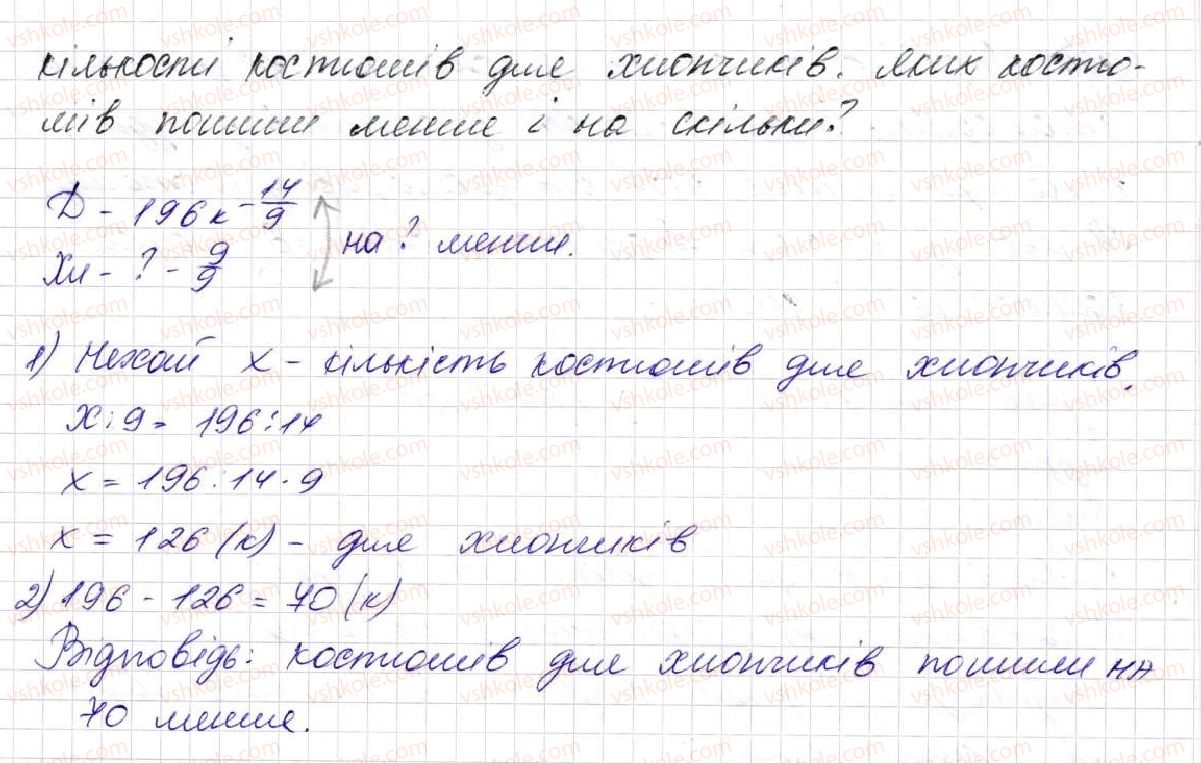 кількості костюмів для хлопчиків. Яких костю-
мів пошили менше і на скільки?
Д - 196 к - 14/9
Хл - ? - 9/9
на ? менше.
1) Нехай х - кількість костюмів для хлопчиків.
х : 9 = 196 : 14
х = 196 : 14 · 9
х = 126 (к) - для хлопчиків
2) 196 - 126 = 70 (к)
Відповідь: костюмів для хлопчиків пошили на
70 менше.
vshkole.com